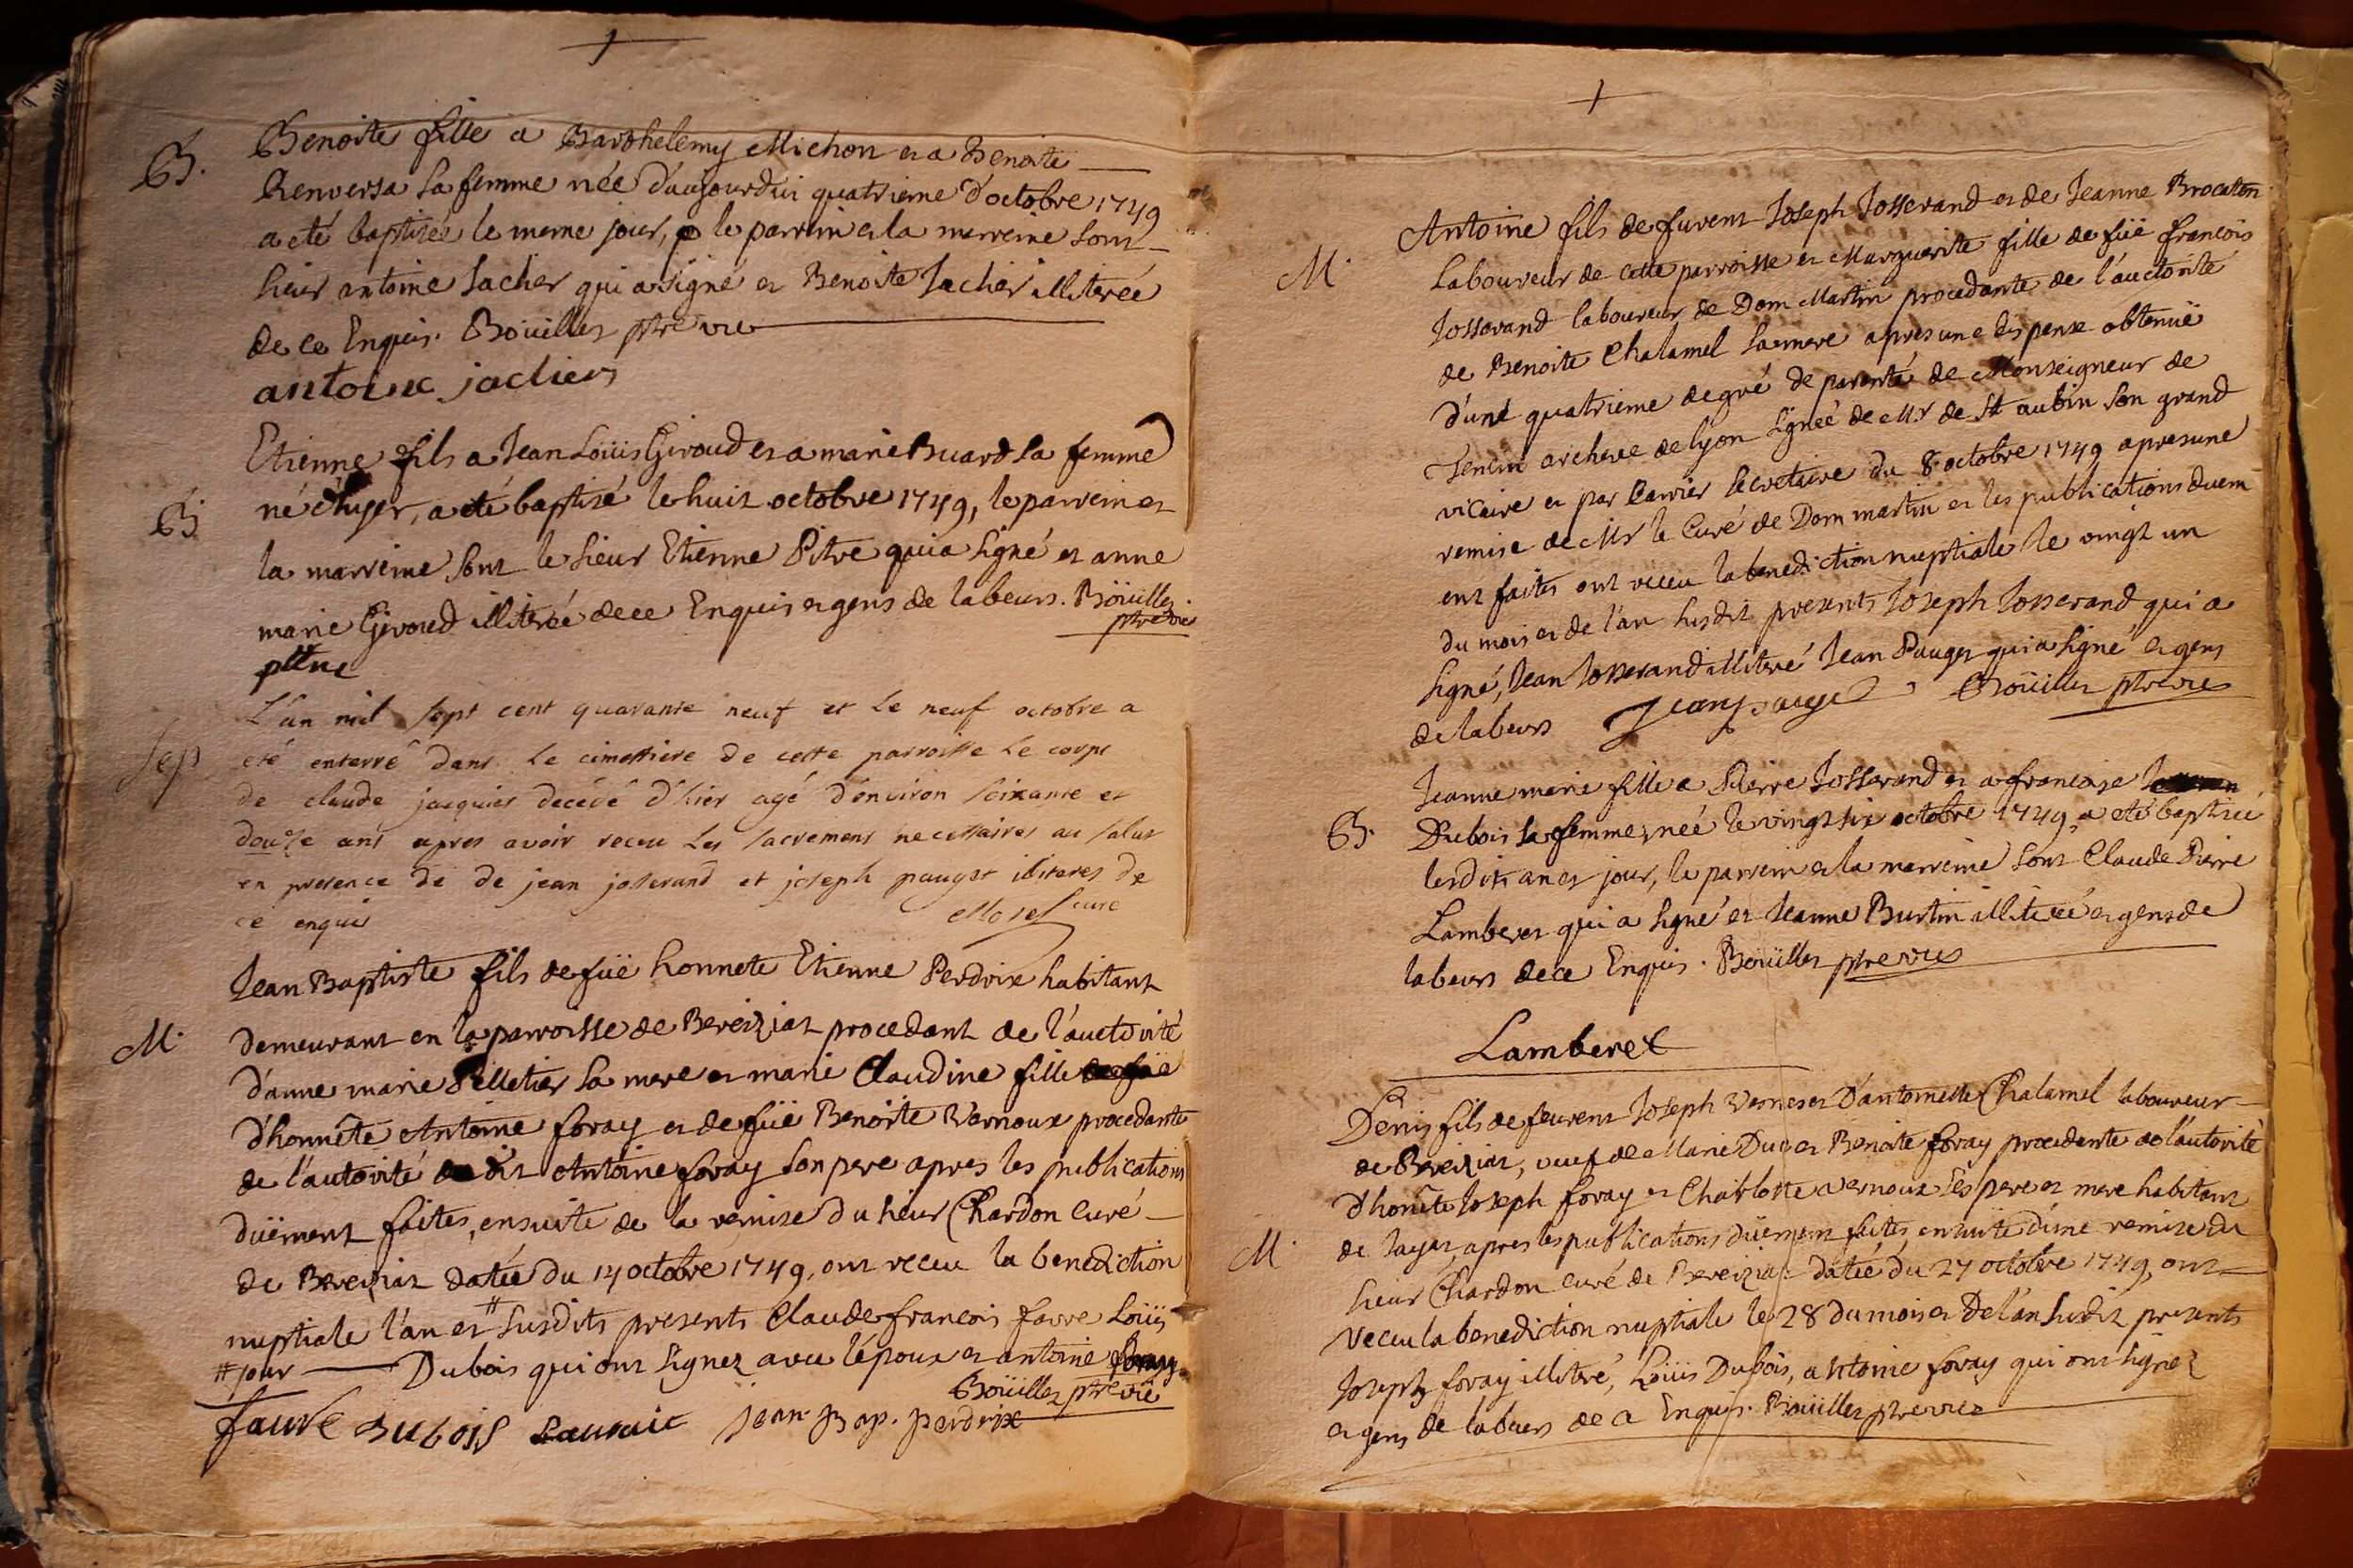 B.
Benoite fille a Barthelemy Michon et a Benoite
Renversa sa femme née d'aujourdui quatrieme d'octobre 1749
a eté baptisée le meme jour, le parrin et la marreine sont
sieur antoine Jacher qui a signé et Benoite Jacher illiterée
de ce Enquis. Boüiller ptre vic
antoine jachier
Etienne fils a Jean Loüis Giroud et a marie Buard sa femme
B.
né d'hyer, a eté baptisé le huit octobre 1749, le parrein et
la marreine sont le sieur Etienne Pitre qui a signé et anne
marie Giroud illiterée de ce Enquis et gens de labeurs. Boüiller
ptre vic
L'an mil sept cent quarante neuf et le neuf octobre a
Sep
eté enterré dans le cimettiere de cette parroisse le corps
de claude jacquier decedé d'hier agé d'environ soixante et
douze ans apres avoir receu les sacremens necessaires au salut
en presence de de jean josserand et joseph pauget illiteres de
ce enquis Morel curé
Jean Baptiste fils de füe honnete Etienne Perdrix habitant
M.
demeurant en la parroisse de Bereiziat procedant de l'auctorité
d'anne marie Pelletier sa mere et marie Claudine fille
d'honnête Antoine foray et de füe Benoite Vernoux procedante
de l'autorité dudit Antoine foray son pere apres les publications
düement faites, ensuite de la remise du sieur Chardon Curé
de Bereiziat datée du 14 octobre 1749, ont receu la benediction
nuptiale l'an et # susdits presents Claude francois favre Loüis
# jour Dubois qui ont signez avec l'époux et antoine foray
Boüiller ptre vic
favre Dubois jean. Bap. perdrix
Antoine fils de furent Joseph Josserand et de Jeanne Brocaton
M.
Laboureur de cette parroisse et Marguerite fille de füe francois
Josserand laboureur de Dom Martin procedante de l'auctorité
de Benoite Chalamel sa mere apres une dispense obtenuë
d'une quatrieme degré de parenté de Monseigneur de
Tencin archeve de lyon signée de Mr de St aubin son grand
vicaire et par Carrier secretaire du 8 octobre 1749 apres une
remise de Mr le Curé de Dom martin et les publications duem
ent faites ont receu la benediction nuptiale le vingt un
du mois et de l'an susdit presents Joseph Josserand qui a
signé, Jean Josserand illiteré Jean Pauget qui a signé et gens
de labeurs Jean pauget Boüiller ptre vic
Jeanne marie fille a Pierre Josserand et a francoise
B.
Dubois sa femme, née le vingt six octobre 1749, a eté baptisée
lesdits an et jour, le parrein et la marreine sont Claude Pierre
Lamberet qui a signé et Jeanne Burtin illiterée et gens de
labeurs de ce Enquis. Boüiller ptre vic
Lamberet
Denis fils de feurent Joseph Vernes et D'antoinette Chalamel laboureur
de Bereiziat, veuf de Marie Duc et Benoite foray procedente de l'autorité
d'honête Joseph foray et Charlotte vernoux ses pere et mere habitant
M.
de Jayat, apres les publications düement faites, ensuite d'une remise du
sieur Chardon curé de Bereiziat datée du 27 octobre 1749, ont
receu la benediction nuptiale le 28 du mois et de l'an susdit presents
Joseph foray illiteré, Loüis Dubois, antoine foray qui ont signez
et gens de labeurs de ce Enquis. Boüiller ptre vic